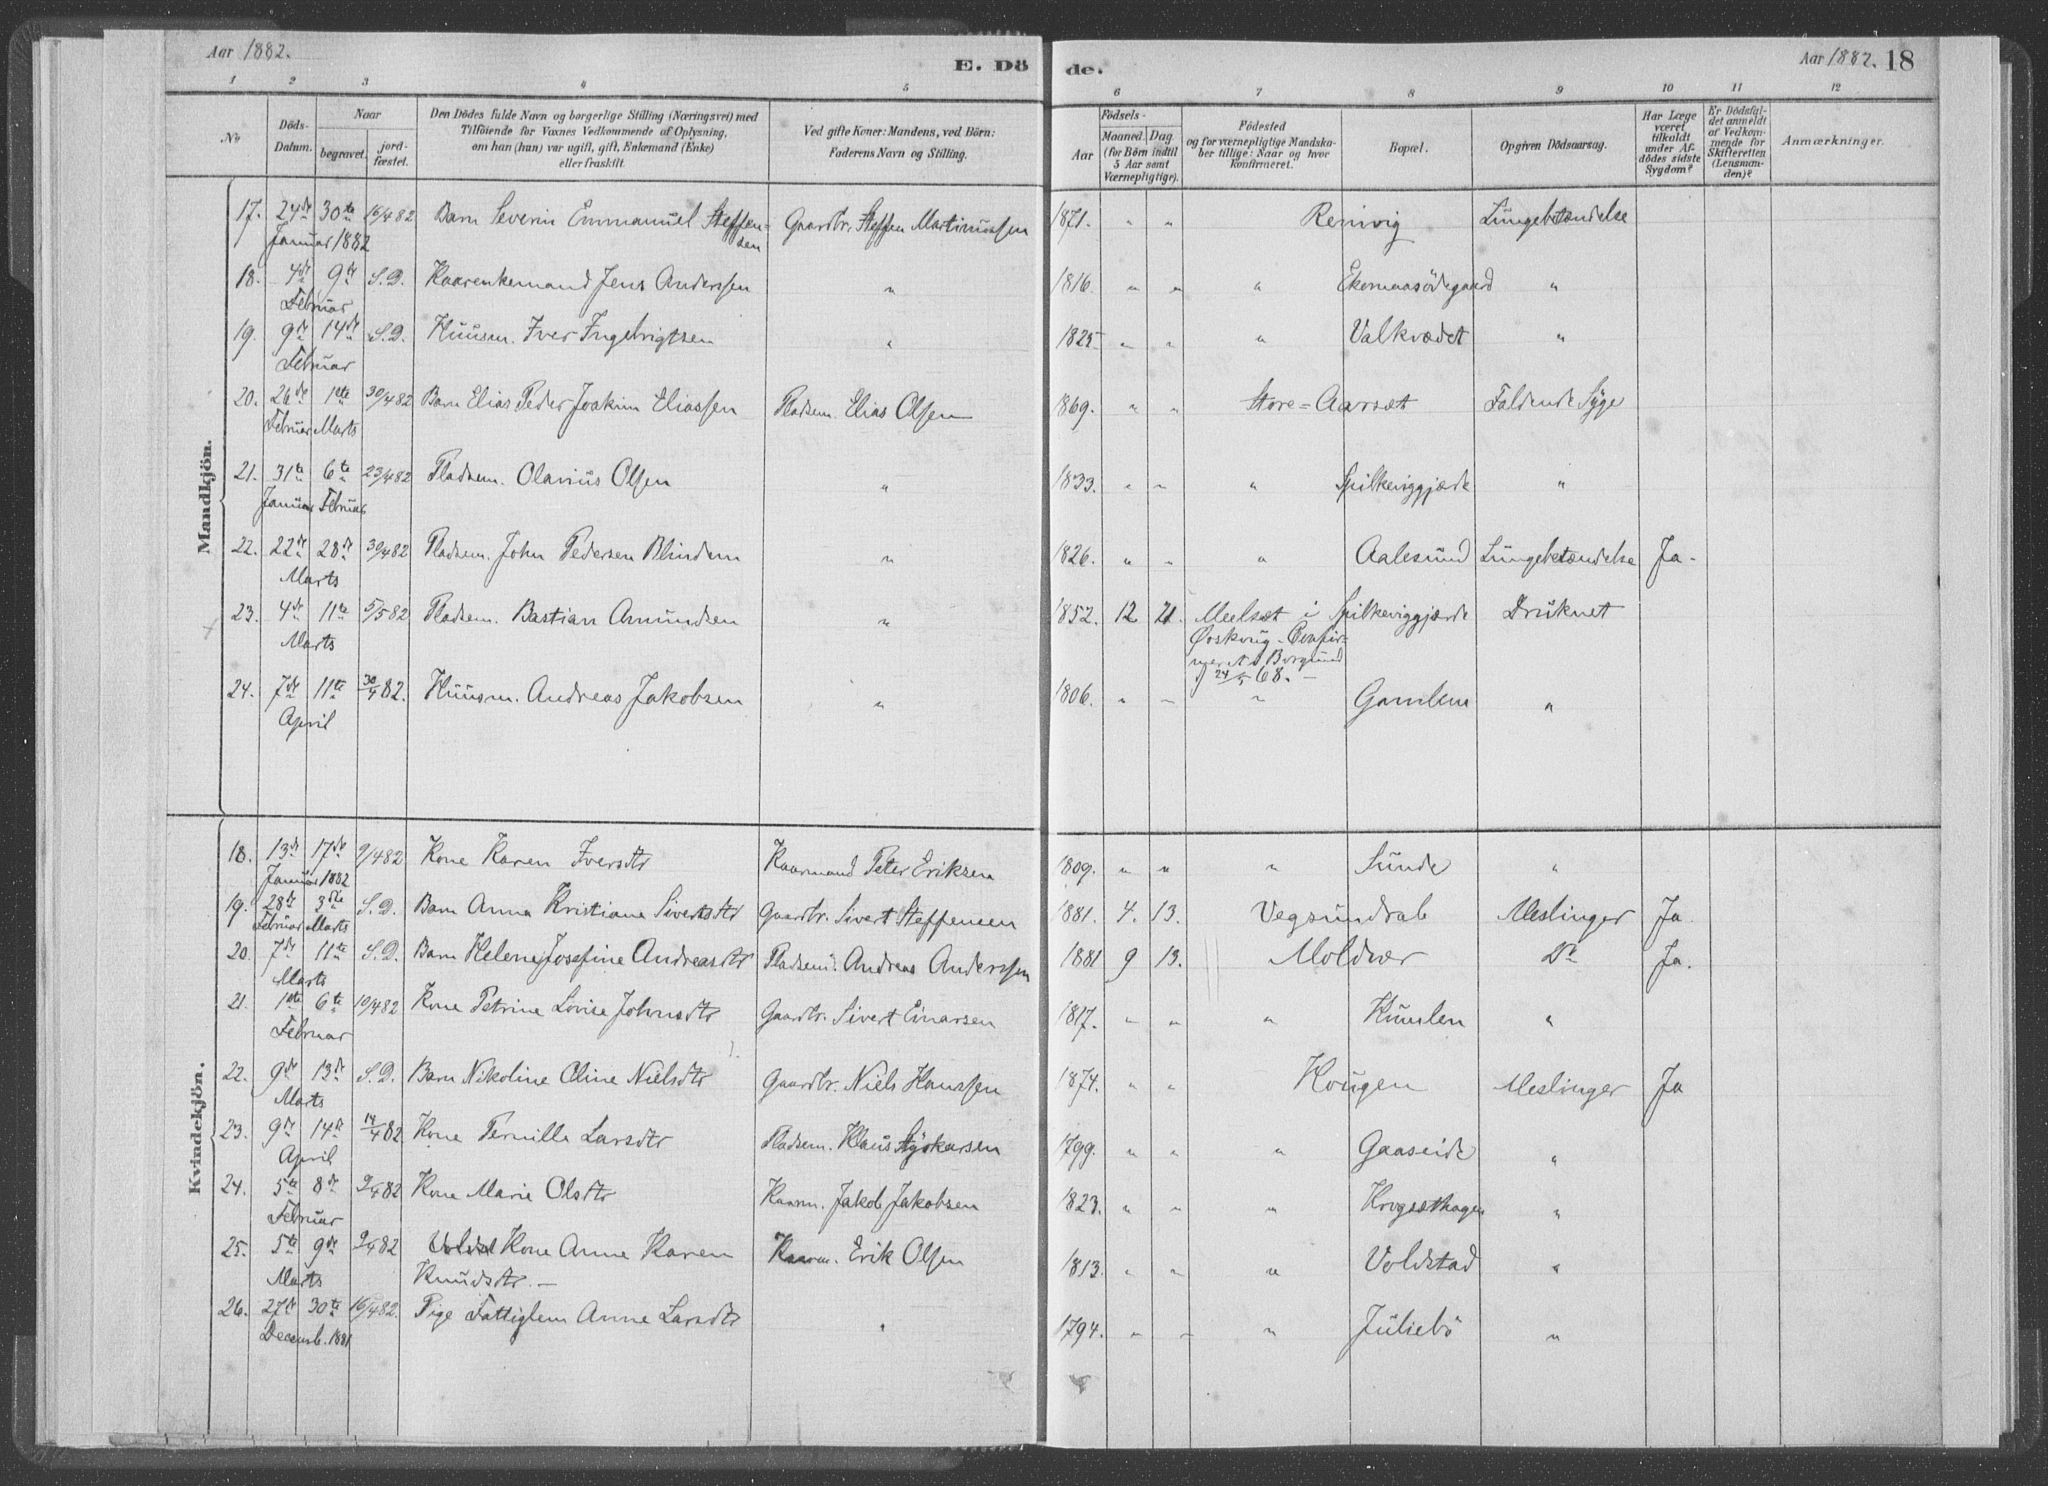 Aar 1882.
E. Dö
de.
Aar 1882. 18
1 2 3 4 5 6 7 8 9 10 11 12
No
Döds-
Datum.
Naar
begravet.
jord-
fæstet.
Den Dödes fulde Navn og borgerlige Stilling (Næringsvei) med
Tilføiende for Voxnes Vedkommende af Oplysning,
om han (hun) var ugift, gift, Enkemand (Enke)
eller fraskilt.
Ved gifte Koner: Mandens, ved Börn:
Faderens Navn og Stilling.
Födsels-
Aar
Maaned. Dag.
(for Börn indtil
5 Aar samt
Værnepligtige).
Födested
og for værnepligtige Mandska-
ber tillige: Naar og hvor
konfirmeret.
Bopæl.
Opgiven Dödsaarsag.
Har Læge
været
tilkaldt
under Af-
dödes sidste
Sygdom?
Er Dödsfal-
det anmeldt
af Vedkom-
mende for
Skifteretten
(Lensman-
den)?
Anmærkninger.
Mandkjön.
17. 24de 30te 16/4 82 Barn Severin Emmanuel Steffen- Gaardbr. Steffen Martinussen 1871. " " Remvig Lungebetændelse
Januar 1882 sen
18. 4de 9de S.D. Kaarenkemand Jens Anderssen " 1816. " " " Ekornaasödegaard "
Februar
19. 9de 14de S.D. Huusm. Iver Ingebrigtsen " 1825 " " " Valkvædet "
Februar
20. 26de 1ste 30/4 82 Barn Elias Peder Joakim Eliassen Pladsm. Elias Olsen 1869. " " Store-Aarsæt Faldende Syge
Februar Marts
21. 31te 6te 23/4 82 Pladsm. Olarius Olsen " 1833. " " " Spilkeviggjærde "
Januar Februar
22. 22de 28de 30/4 82 Pladsm. John Pedersen Blindem " 1826. " " " Aalesund Lungebetændelse Ja.
Marts
23. 4de 11te 5/5 82 Pladsm. Bastian Amundsen " 1852. 12 21. Meelsæt i Spilkeviggjærde Druknet
Marts Ørskoug - Confir-
meret i Borgund
24/5 68. -
24. 7de 11te 30/4 82. Huusm. Andreas Jakobsen " 1806. " " " Gamlem "
April
Kvindekjön.
18. 13de 17de 9/4 82 Kone Karen Iversdtr Kaarmand Peter Eriksen 1809. " " " Sunde "
Januar 1882
19. 28de 3die S.D. Barn Anna Kristiane Sivertsdtr Gaardbr. Sivert Steffensen 1881. 4. 13. Vegsundral Meslinger Ja
Februar Marts
20. 7de 11te S.D. Barn Helene Josefine Andreasdtr Pladsm. Andreas Anderssen 1881 9 13. Moldvær Do Ja.
Marts
21. 1ste 6te 10/4 82 Kone Petrine Lovise Johnsdtr Gaardbr. Sivert Einarsen 1817. " " " Humlen "
Februar
22. 9de 13de S.D. Barn Nikoline Oline Nielsdtr Gaardbr. Niels Hanssen 1874. " " Hougen Meslinger Ja
Marts
23. 9de 14de 14/4 82 Kone Pernille Larsdtr Pladsm. Klaus Styrkarsen 1799. " " " Gaaseide "
April
24. 5te 8de 2/4 82 Kone Marie Olsdtr Kaarm. Jakob Jakobsen 1823. " " " Krogsæthagen "
Februar
25. 5te 9de 2/4 82 Kone Anne Karen Kaarm. Erik Olsen 1813. " " " Voldstad "
Marts Knudsdtr. -
26. 27de 30te 16/4 82. Pige Fattiglem Anne Larsdtr " 1794. " " " Juliebö "
Decemb. 1881